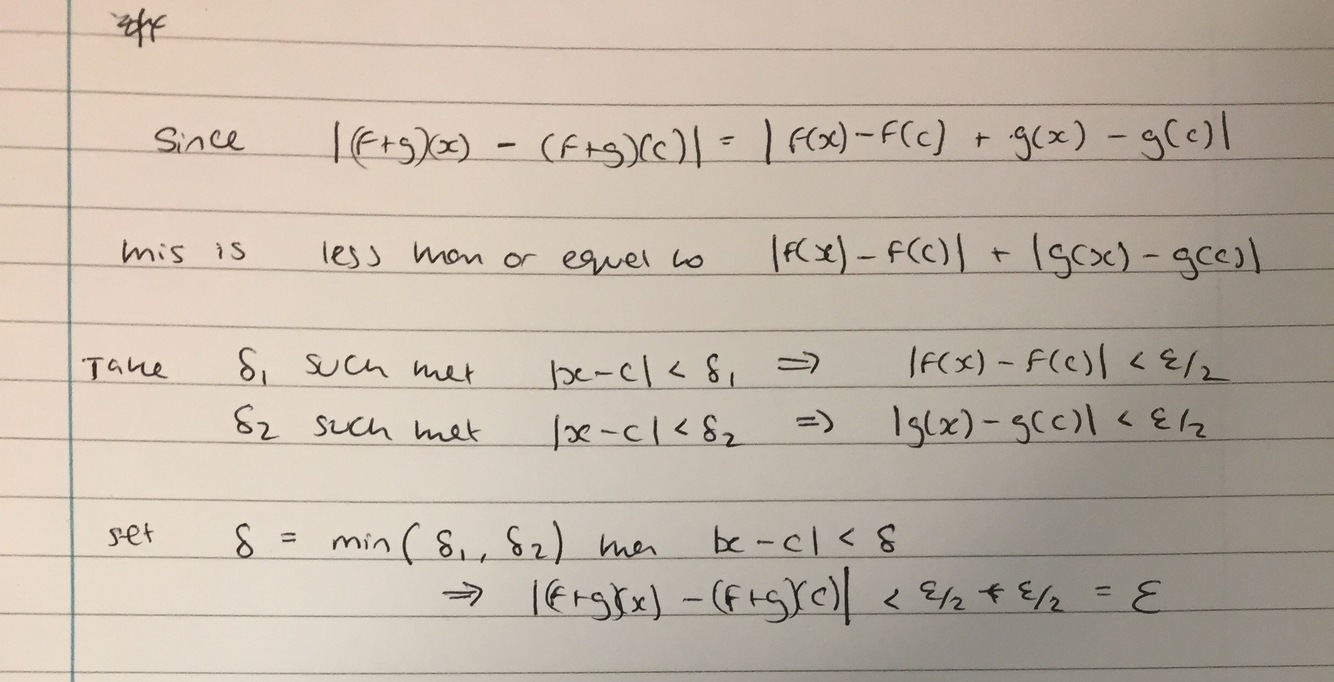 Since |(f+g)(x) - (f+g)(c)| = | f(x) - f(c) + g(x) - g(c)|
this is less than or equal to |f(x) - f(c)| + |g(x) - g(c)|
Take δ₁ such that |x-c| < δ₁ ⇒ |f(x) - f(c)| < ε/2
δ₂ such that |x-c| < δ₂ ⇒ |g(x) - g(c)| < ε/2
set δ = min( δ₁, δ₂) then |x-c| < δ
⇒ |(f+g)(x) - (f+g)(c)| < ε/2 + ε/2 = ε